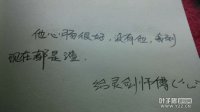 他心肠很好，没有他，我到
现在都是渣
给灵剑师傅（^_^）
叶子猪